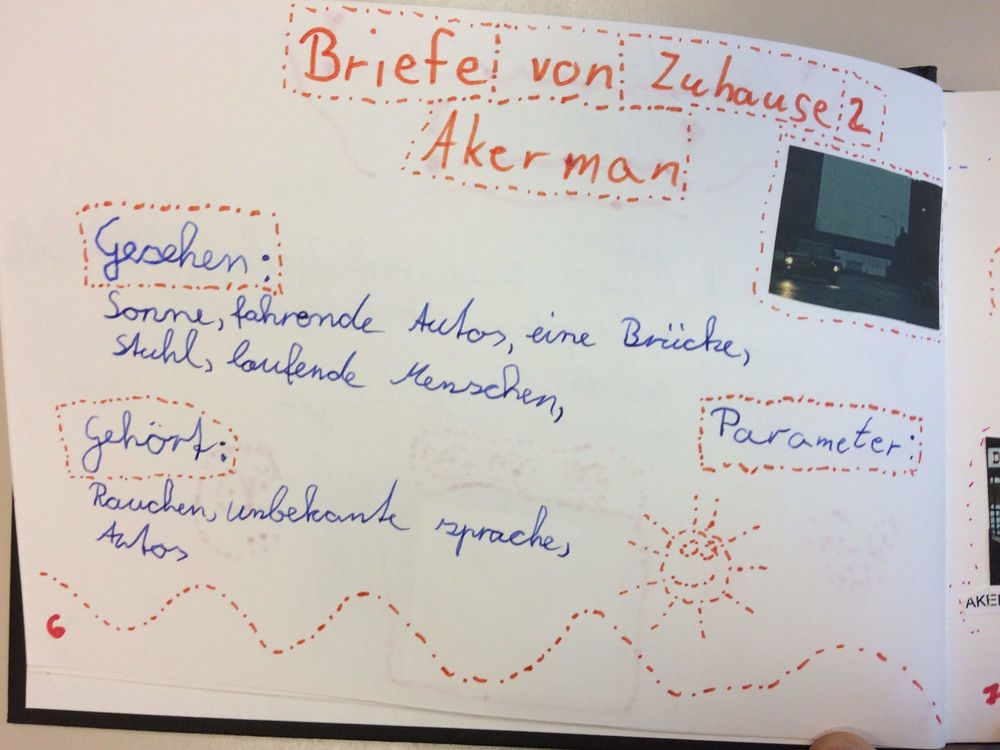 Briefe von Zuhause 2
Akerman
Gesehen:
Sonne, fahrende Autos, eine Brücke,
Stuhl, laufende Menschen,
Gehört:
Rauchen, unbekante sprache,
Autos
Parameter:
6